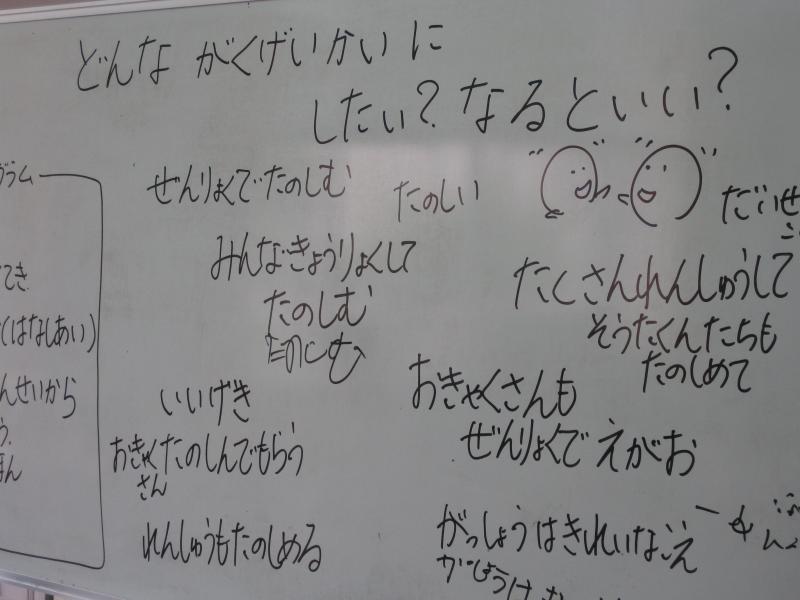 どんな がくげいかいに
したい？なるといい？
ぜんりょくでたのしむ
たのしい
だいせ
みんなきょうりょくして
たのしむ
たのしむ
たくさんれんしゅうして
そうたくんたちも
たのしめて
いいげき
おきゃくたのしんでもらう
さん
おきゃくさんも
ぜんりょくでえがお
れんしゅうもたのしめる
がっしょうはきれいなこえ
てき
(はなしあい)
んせいから
う
ほん